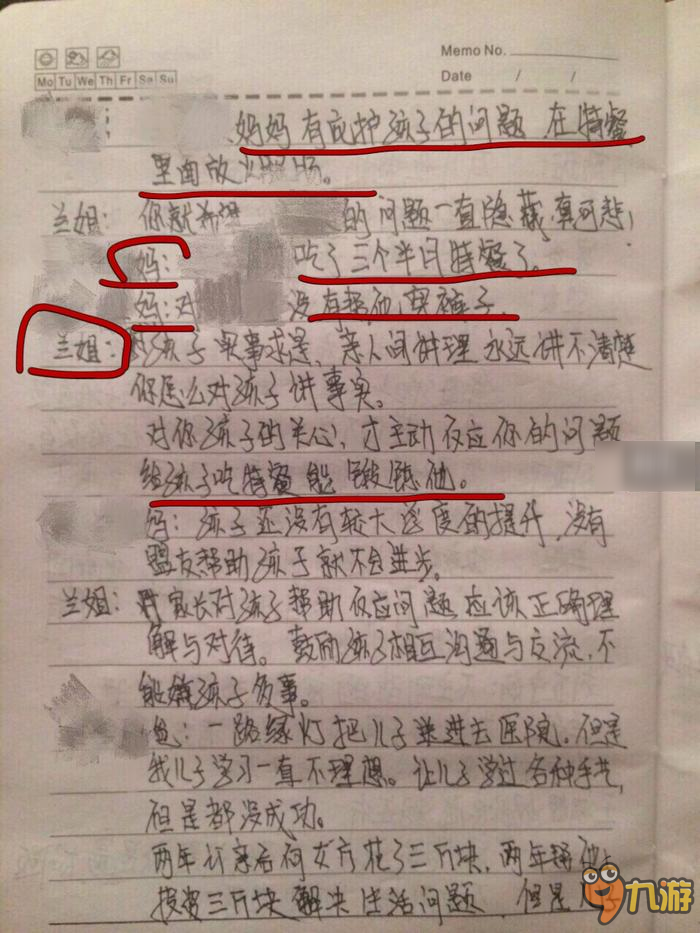 Memo No.
Mo Tu We Th Fr Sa Su
Date / /
妈妈有庇护孩子的问题 在特餐
里面放
兰姐: 你就 的问题一直隐藏,真可悲!
妈: 吃了三个半月特餐了。
妈:对 没有帮他买裤子。
兰姐: 对孩子实事求是,亲人间讲理永远讲不清楚
你怎么对孩子讲事实。
对你孩子的关心,才主动反应你的问题
给孩子吃特餐能锻炼他。
妈: 孩子还没有较大深度的提升,没有
盟友帮助孩子就不会进步。
兰姐: 家长对孩子帮助反应问题应该正确理
解与对待。鼓励孩子相互沟通与交流,不
能嫌孩子多事。
爸: 一路绿灯把儿子送进去医院,但是
我儿子学习一直不理想。让儿子学过各种手艺,
但是都没成功。
两年 花了三万块,两年
投资三万块解决生活问题,但是
九游